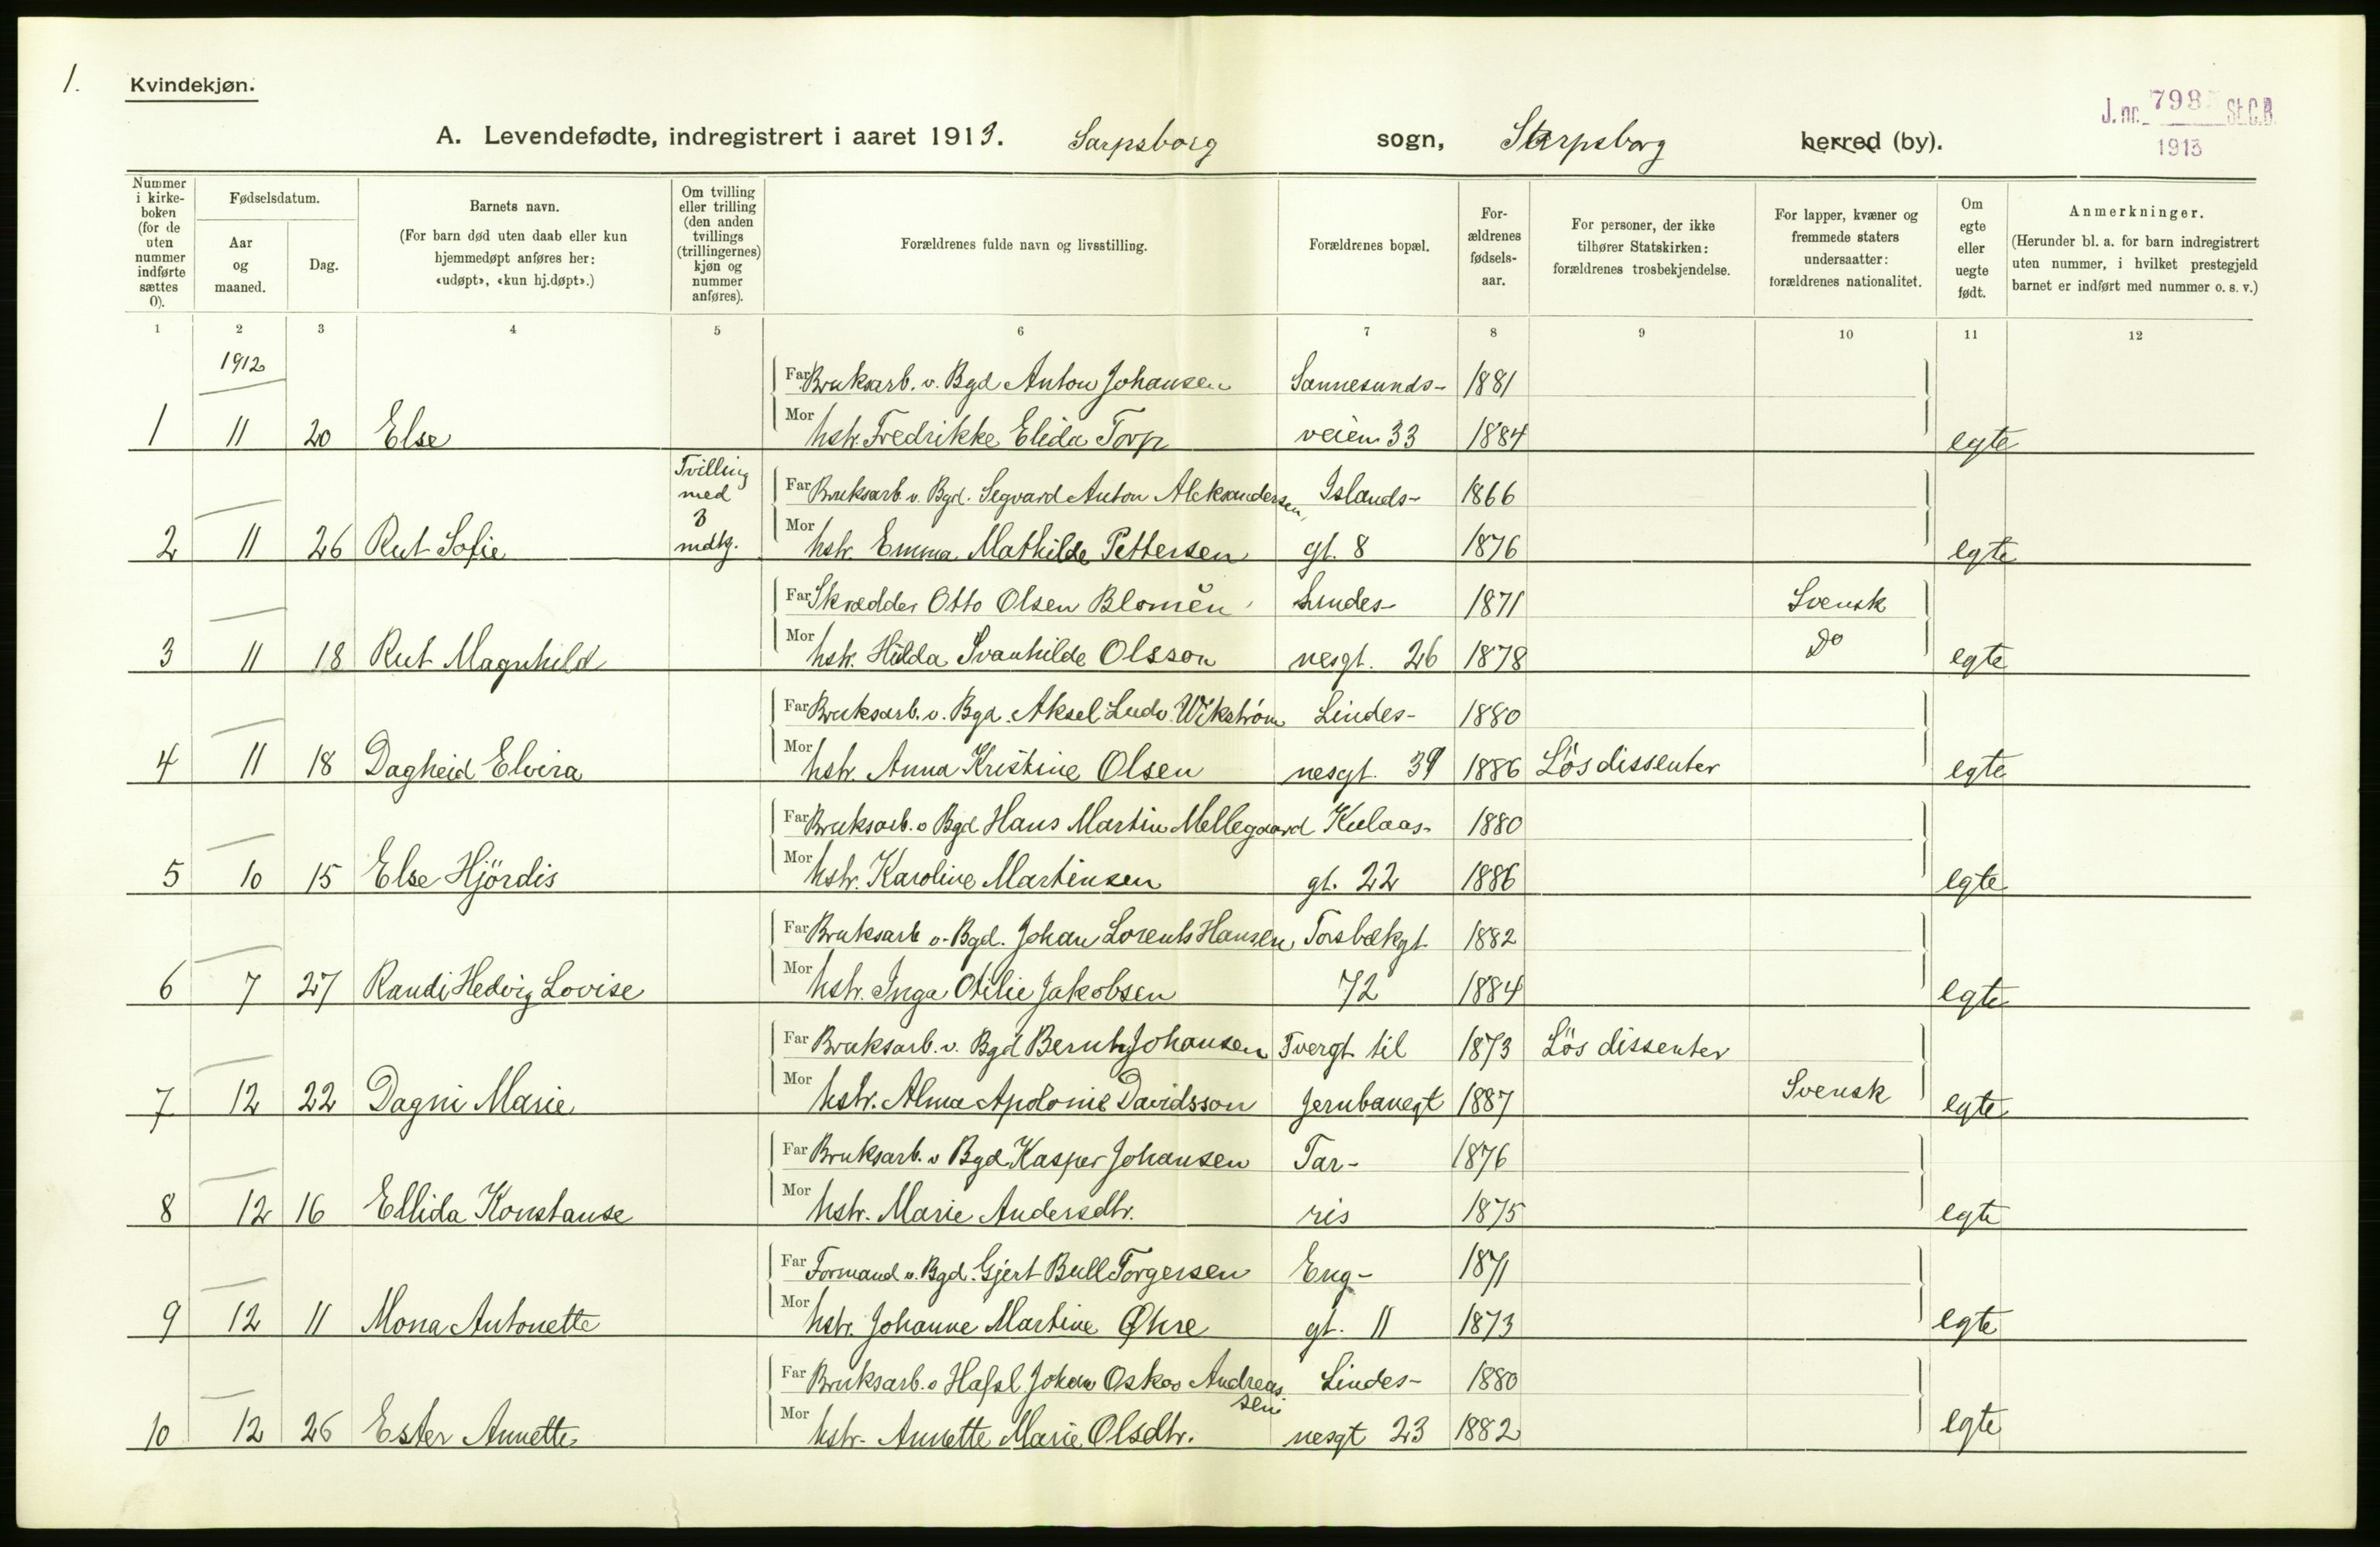 1.
Kvindekjøn.
J. nr. 798 St.C.B.
1913
A. Levendefødte, indregistrert i aaret 1913. Sarpsborg sogn, Sarpsborg herred (by).
Nummer i kirke-boken (for de uten nummer indførte sættes 0).
Fødselsdatum.
Aar og maaned.
Dag.
Barnets navn.
(For barn død uten daab eller kun hjemmedøpt anføres her: «udøpt», «kun hj.døpt».)
Om tvilling eller trilling (den anden tvillings (trillingernes) kjøn og nummer anføres).
Forældrenes fulde navn og livsstilling.
Forældrenes bopæl.
For-ældrenes fødsels-aar.
For personer, der ikke tilhører Statskirken: forældrenes trosbekjendelse.
For lapper, kvæner og fremmede staters undersaatter: forældrenes nationalitet.
Om egte eller uegte født.
Anmerkninger.
(Herunder bl. a. for barn indregistrert uten nummer, i hvilket prestegjeld barnet er indført med nummer o. s. v.)
1 2 3 4 5 6 7 8 9 10 11 12
1912
Far Bruksarb. v. Bgd Anton Johansen Sannesunds- 1881
1 11 20 Else Mor hstr. Fredrikke Elida Torp veien 33 1884 egte
Tvilling
med
Far Bruksarb. v. Bgd. Segvard Anton Aleksandersen Islands- 1866
3
2 11 26 Rut Sofie mdkj. Mor hstr. Emma Mathilde Pettersen gt. 8 1876 egte
Far Skrædder Otto Olsen Blomén Lindes- 1871 Svensk
3 11 18 Rut Magnhild Mor hstr. Hilda Svanhilde Olsson nesgt. 26 1878 Do egte
Far Bruksarb. v. Bgd. Aksel Ludv. Wikström Lindes- 1880
4 11 18 Dagheid Elvira Mor hstr. Anna Kristine Olsen nesgt. 39 1886 Lös dissenter egte
Far Bruksarb. v Bgd Hans Martin Mellegaard Kulaas- 1880
5 10 15 Else Hjördis Mor hstr. Karoline Martinsen gt. 22 1886 egte
Far Bruksarb v. Bgd. Johan Lorents Hansen Torsbækgt 1882
6 7 27 Randi Hedvig Lovise Mor hstr. Inga Otilie Jakobsen 72 1884 egte
Far Bruksarb. v. Bgd Bernh. Johansen Tvergt til 1873 Lös dissenter
7 12 22 Dagni Marie Mor hstr. Alma Apolonie Davidsson Jernbanegt 1887 Svensk egte
Far Bruksarb. v Bgd Kasper Johansen Tar- 1876
8 12 16 Ellida Konstanse Mor hstr. Marie Andersdtr. ris 1875 egte
Far Formand v. Bgd. Gjert Bull Torgersen Eng- 1871
9 12 11 Mona Antonette Mor hstr. Johanne Martine Øhre gt. 11 1873 egte
Far Bruksarb. v Hafsl Johan Oskar Andreas- Lindes- 1880
sen
10 12 26 Ester Annette Mor hstr. Annette Marie Olsdtr. nesgt 23 1882 egte